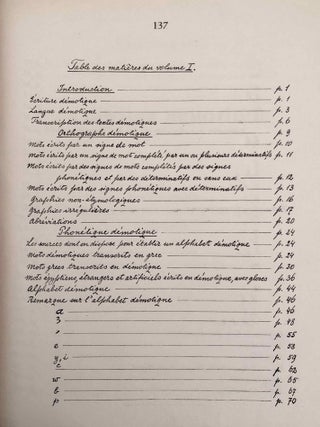 137
Table des matières du volume I.
Introduction p. 1
Écriture démotique p. 1
Langue démotique p. 3
Transcription des textes démotiques p. 6
Orthographe démotique p. 9
Mots écrits par un signe de mot p. 10
Mots écrits par un signe de mot complété par un ou plusieurs déterminatifs p. 11
Mots écrits par des signes de mot complétés par des signes
phonétiques et par des déterminatifs en sens eux p. 12
Mots écrits par des signes phonétiques avec déterminatifs p. 13
Graphies non-étymologiques p. 16
Graphies irrégulières p. 17
Abréviations p. 20
Phonétique démotique p. 24
Les sources dont on dispose pour établir un alphabet démotique p. 24
Mots démotiques transcrits en grec p. 24
Mots grecs transcrits en démotique p. 30
Mots égyptiens, étrangers et artificiels écrits en démotique, avec gloses p. 36
Alphabet démotique p. 44
Remarque sur l'alphabet démotique p. 46
a p. 46
3 p. 48
' p. 55
e p. 58
y, i p. 59
c p. 62
w p. 65
b p. 67
p p. 70